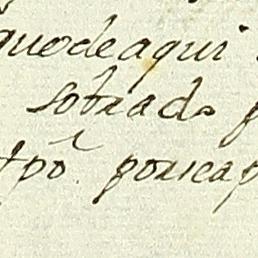 quodeaqui
sobrado p
tpõ. poricap